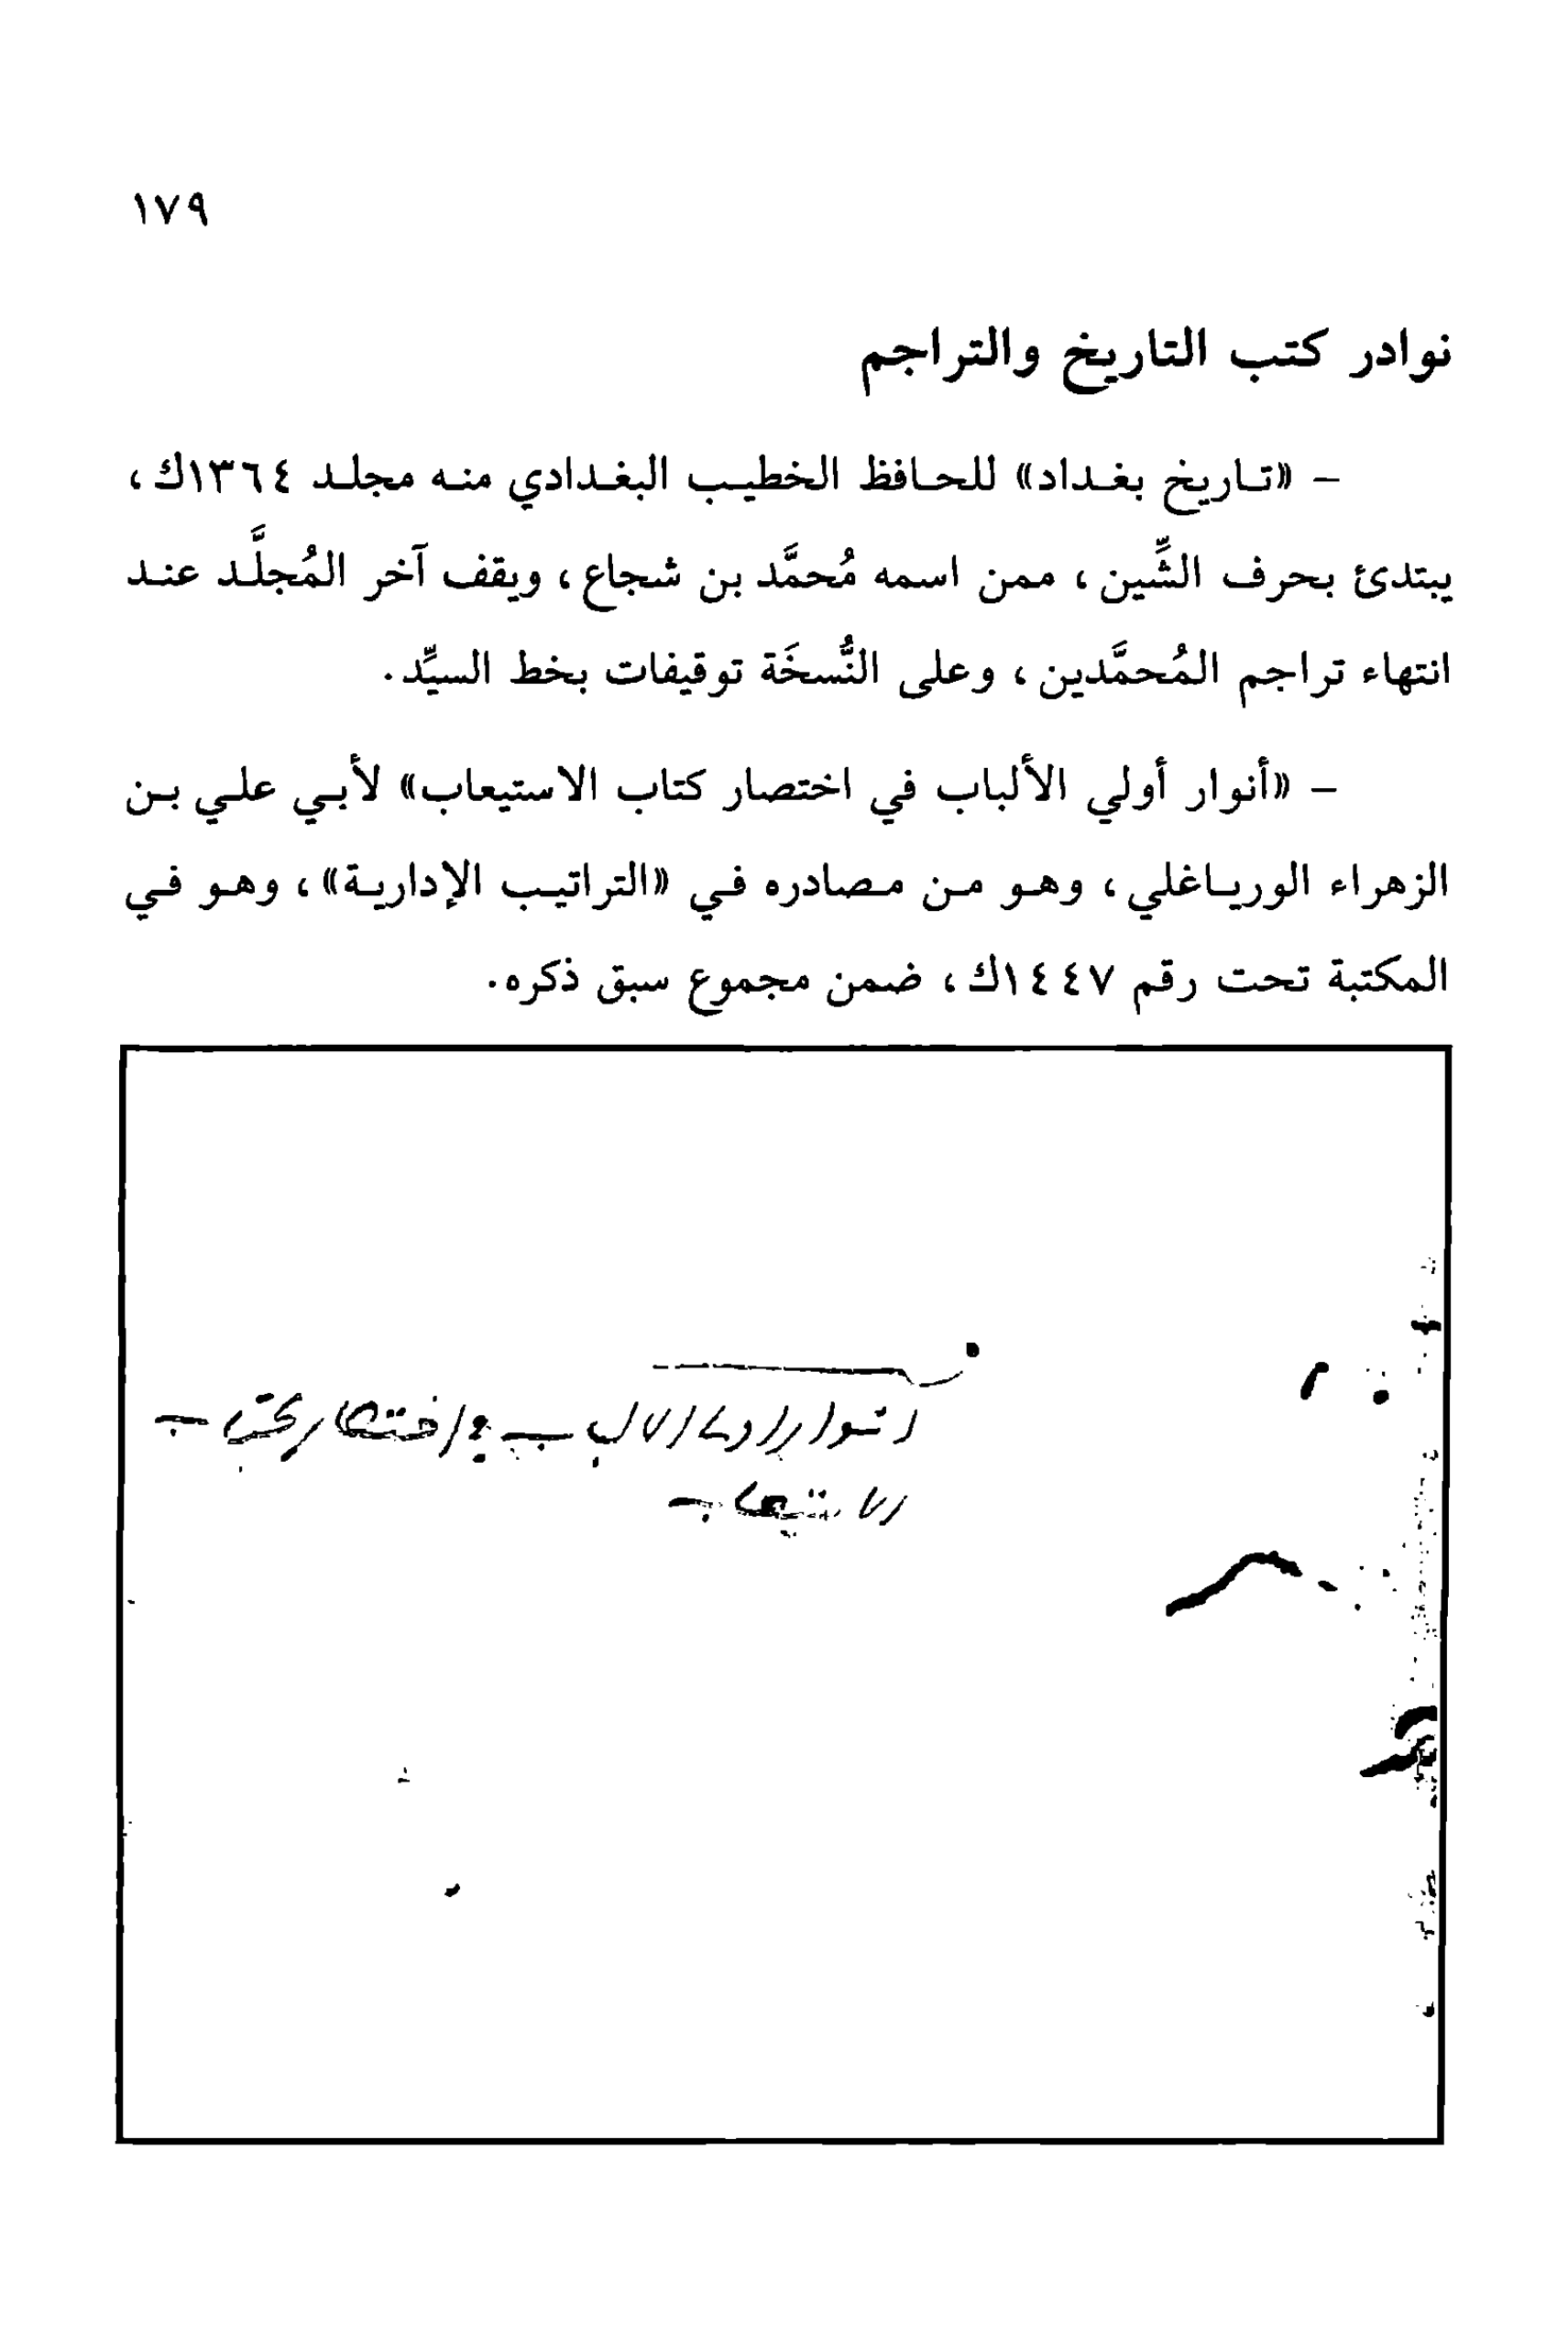 ١٧٩
نوادر كتب التاريخ والتراجم
– «تاريخ بغداد» للحافظ الخطيب البغدادي منه مجلد ١٣٦٤ك،
يبتدئ بحرف الشِّين، ممن اسمه مُحمَّد بن شجاع، ويقف آخر المُجلَّد عند
انتهاء تراجم المُحمَّدين، وعلى النُّسخَة توقيفات بخط السيِّد.
– «أنوار أولي الألباب في اختصار كتاب الاستيعاب» لأبي علي بن
الزهراء الورياغلي، وهو من مصادره في «التراتيب الإدارية»، وهو في
المكتبة تحت رقم ١٤٤٧ك، ضمن مجموع سبق ذكره.
انوار اولى الالباب في اختصار كتاب
الاستيعاب